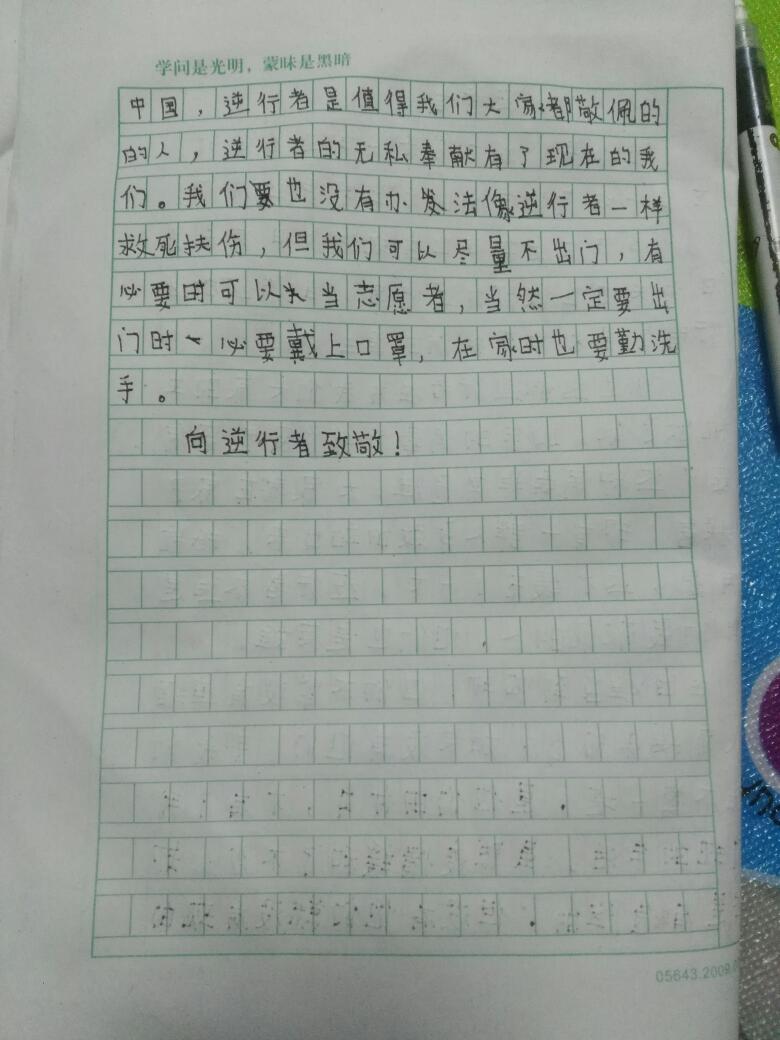 学问是光明，蒙昧是黑暗
中国，逆行者是值得我们大家都敬佩的
的人，逆行者的无私奉献有了现在的我
们。我们要也没有办发法像逆行者一样
救死扶伤，但我们可以尽量不出门，有
必要时可以去当志愿者，当然一定要出
门时一必要戴上口罩，在家时也要勤洗
手。
向逆行者致敬！
05643.2009